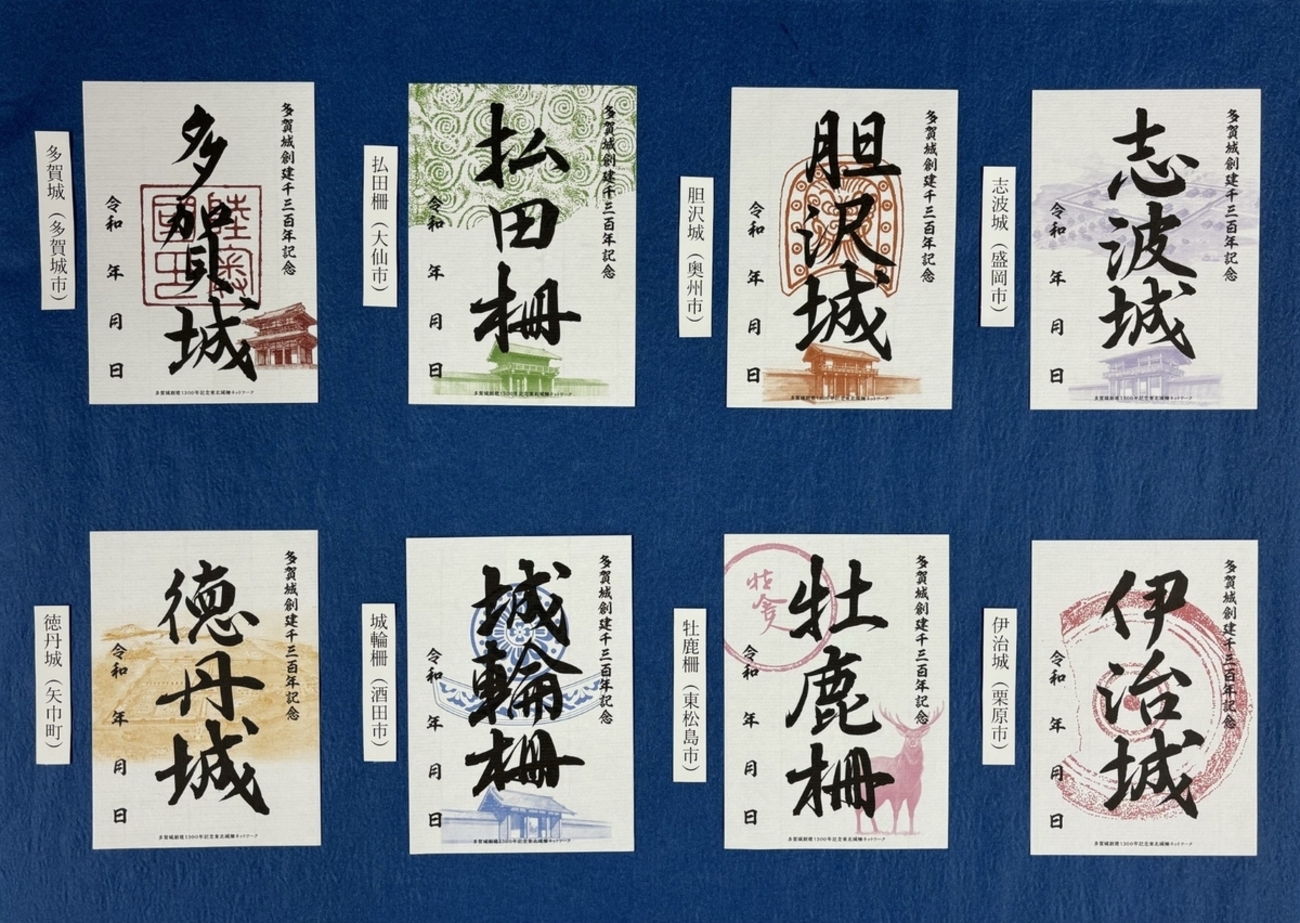 多賀城（多賀城市）
多賀城創建千三百年記念
多賀城
令和　年　月　日
多賀城創建1300年記念東北城柵ネットワーク
払田柵（大仙市）
多賀城創建千三百年記念
払田柵
令和　年　月　日
多賀城創建1300年記念東北城柵ネットワーク
胆沢城（奥州市）
多賀城創建千三百年記念
胆沢城
令和　年　月　日
多賀城創建1300年記念東北城柵ネットワーク
志波城（盛岡市）
多賀城創建千三百年記念
志波城
令和　年　月　日
多賀城創建1300年記念東北城柵ネットワーク
徳丹城（矢巾町）
多賀城創建千三百年記念
徳丹城
令和　年　月　日
多賀城創建1300年記念東北城柵ネットワーク
城輪柵（酒田市）
多賀城創建千三百年記念
城輪柵
令和　年　月　日
多賀城創建1300年記念東北城柵ネットワーク
牡鹿柵（東松島市）
多賀城創建千三百年記念
牡鹿柵
令和　年　月　日
多賀城創建1300年記念東北城柵ネットワーク
伊治城（栗原市）
多賀城創建千三百年記念
伊治城
令和　年　月　日
多賀城創建1300年記念東北城柵ネットワーク